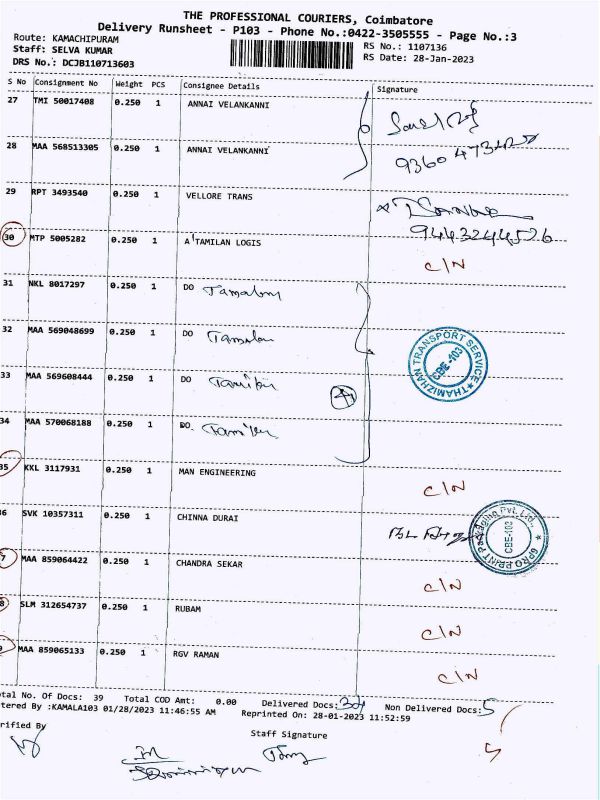 THE PROFESSIONAL COURIERS, Coimbatore
Delivery Runsheet - P103 - Phone No.:0422-3505555 - Page No.:3
Route: KAMACHIPURAM
RS No.: 1107136
Staff: SELVA KUMAR
RS Date: 28-Jan-2023
DRS No.: DCJB110713603
S No Consignment No Weight PCS Consignee Details Signature
27 TMI 50017408 0.250 1 ANNAI VELANKANNI
28 MAA 568513305 0.250 1 ANNAI VELANKANNI
29 RPT 3493540 0.250 1 VELLORE TRANS
9443244526
30 MTP 5005282 0.250 1 A'TAMILAN LOGIS C/N
31 NKL 8017297 0.250 1 DO
32 MAA 569048699 0.250 1 DO
THAMIZHAN TRANSPORT SERVICE
CBE-103
33 MAA 569608444 0.250 1 DO
34 MAA 570068188 0.250 1 DO.
35 KKL 3117931 0.250 1 MAN ENGINEERING C/N
6 SVK 10357311 0.250 1 CHINNA DURAI
6PRO PRINT Packaging Pvt. Ltd.,
CBE-103
7 MAA 859064422 0.250 1 CHANDRA SEKAR C/N
8 SLM 312654737 0.250 1 RUBAM C/N
9 MAA 859065133 0.250 1 RGV RAMAN C/N
tal No. Of Docs: 39 Total COD Amt: 0.00 Delivered Docs: 34 Non Delivered Docs: 5
tered By :KAMALA103 01/28/2023 11:46:55 AM Reprinted On: 28-01-2023 11:52:59
rified By
Staff Signature
5